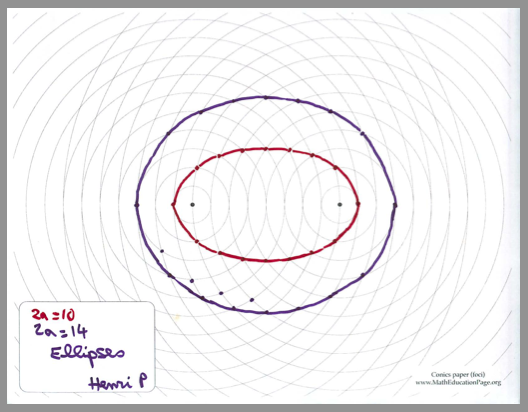 2a=10
2a=14
Ellipses
Henri P
Conics paper (foci)
www.MathEducationPage.org